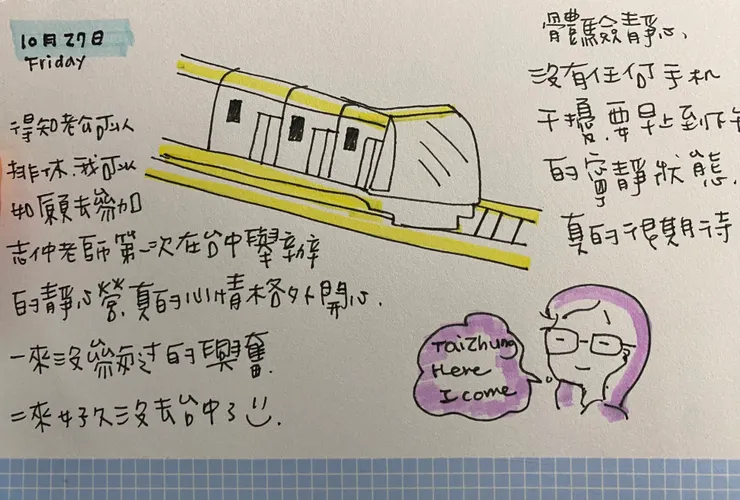 10月27日
Friday
得知老公可以
排休.我可以
如願去參加
志仲老師第一次在台中舉辦
的靜心營.真的心情格外開心.
一來沒參加過的興奮.
二來好久沒去台中了
體驗靜心、
沒有任何手机
干擾.要早上到下午
的寧靜狀態.
真的很期待
TaiZhung
Here
I come